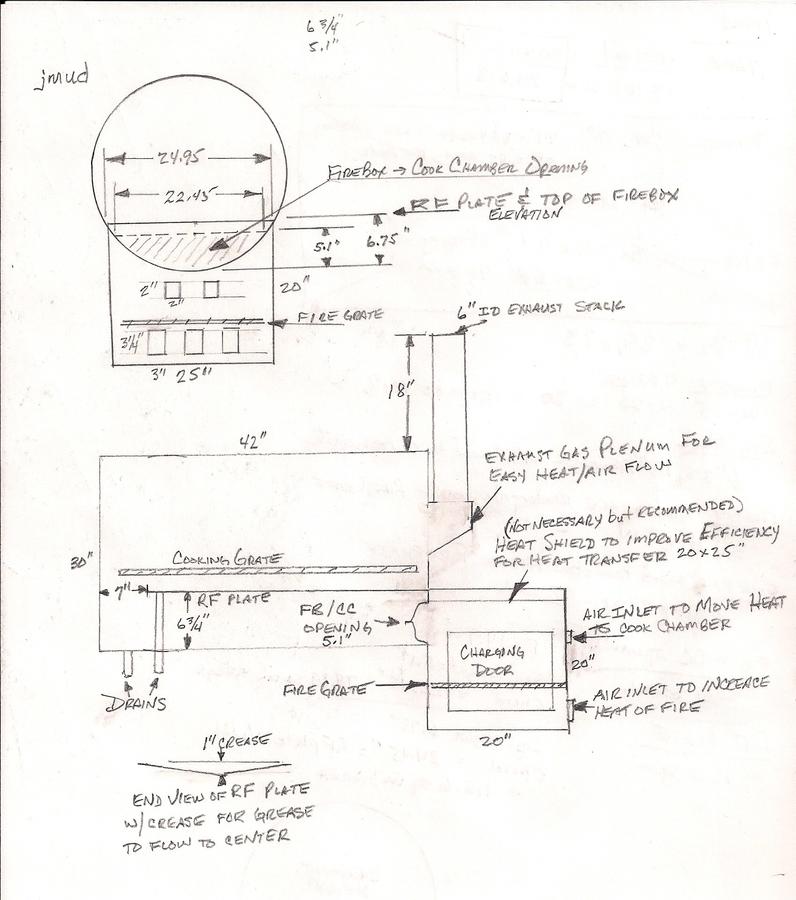 6 3/4"
5.1"
jmud
24.95
22.45
FIREBOX → COOK CHAMBER OPENING
RF PLATE & TOP OF FIREBOX
ELEVATION
5.1"
6.75"
2"
2"
20"
FIRE GRATE
3 1/4"
3"
25"
6" ID EXHAUST STACK
18"
42"
EXHAUST GAS PLENUM FOR
EASY HEAT/AIR FLOW
(NOT NECESSARY but RECOMMENDED)
HEAT SHIELD TO IMPROVE EFFICIENCY
FOR HEAT TRANSFER 20x25"
30"
COOKING GRATE
7"
RF PLATE
6 3/4"
FB/CC
OPENING
5.1"
AIR INLET TO MOVE HEAT
TO COOK CHAMBER
CHARGING
DOOR
20"
FIRE GRATE
AIR INLET TO INCREASE
HEAT OF FIRE
DRAINS
20"
1" CREASE
END VIEW OF RF PLATE
W/CREASE FOR GREASE
TO FLOW TO CENTER